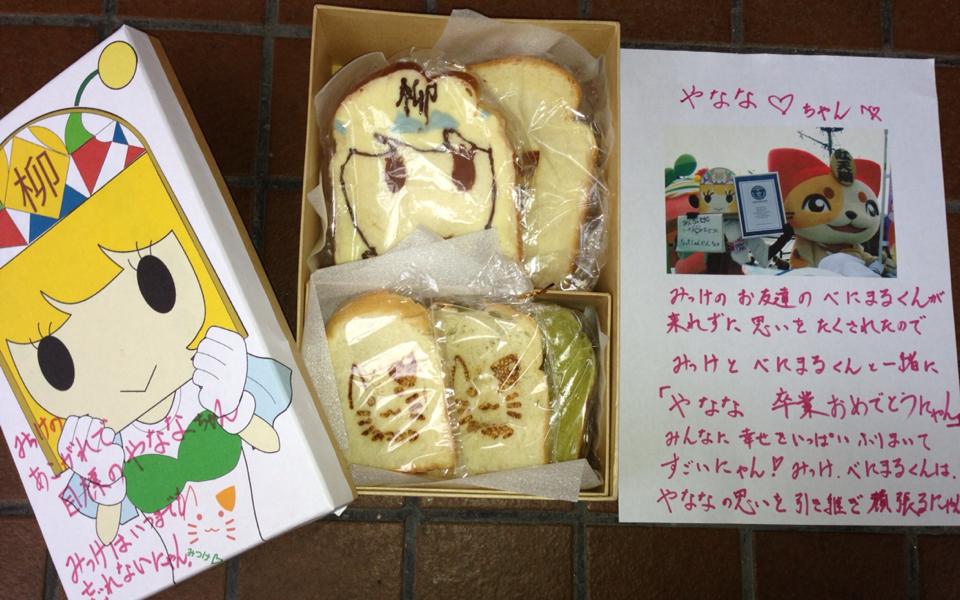 柳
みっけの
あこがれで
目標のやななちゃん
みっけはいつまでも
忘れないにゃん!
みっけ
やなな♡ちゃん
みっけの お友達の べにまるくんが
来れずに 思いを たくされたので
みっけと べにまるくんと一緒に
「やなな 卒業おめでとうにゃん」
みんなに 幸せをいっぱい ふりまいて
すごいにゃん! みっけ、べにまるくんは、
やななの思いを 引き継ぎ 頑張るにゃん